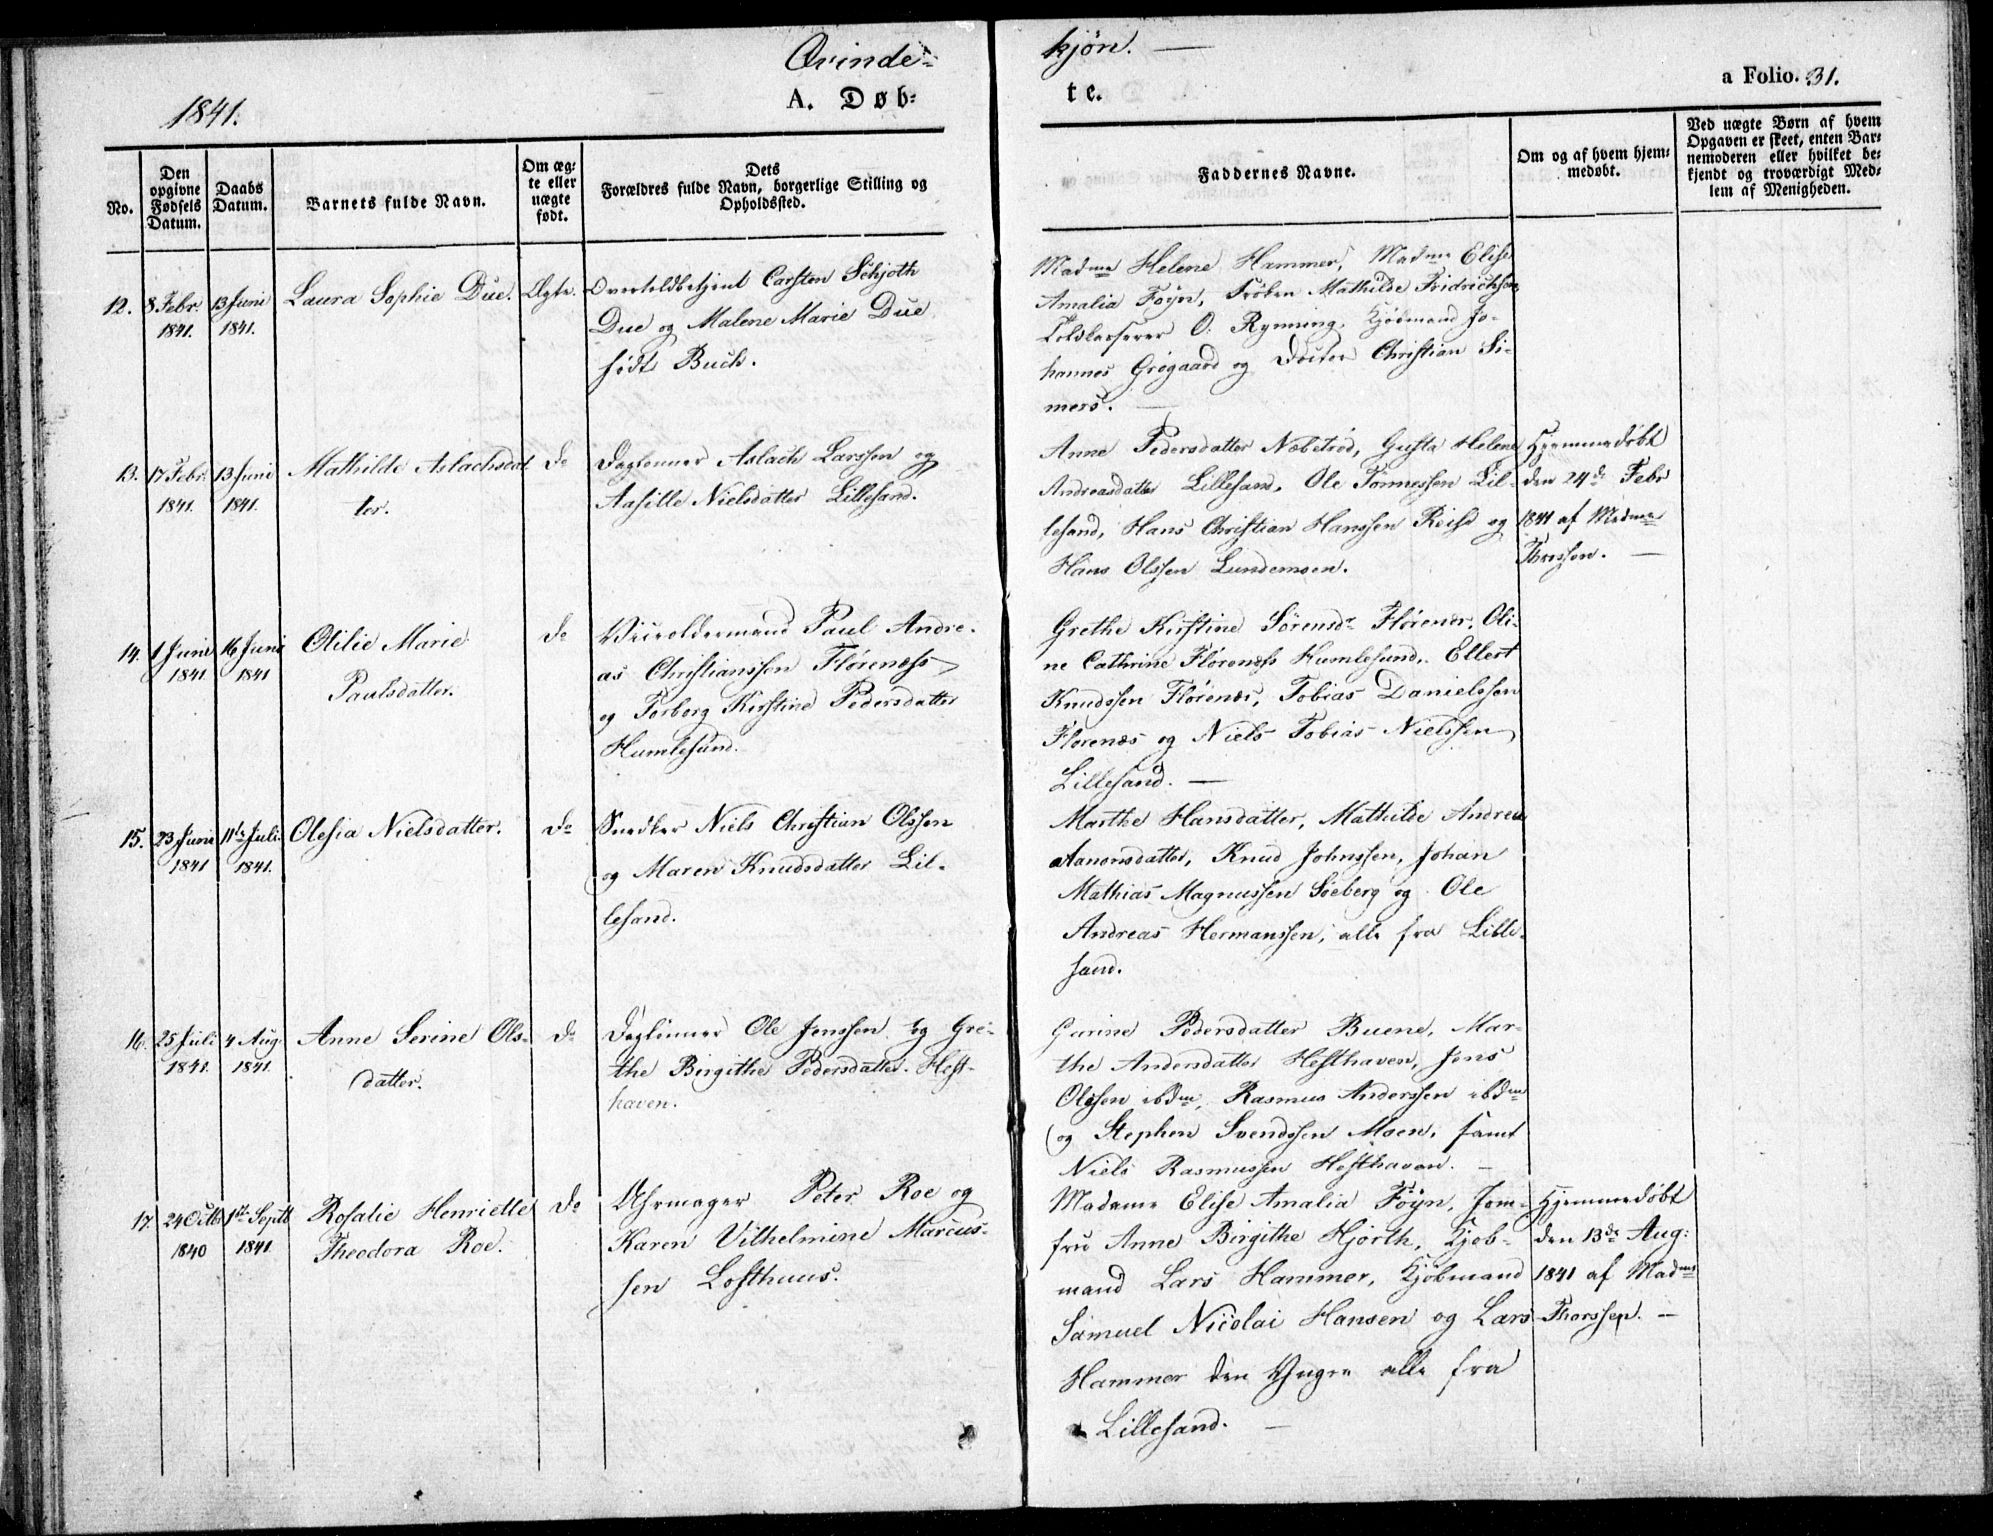 Qvinde-
kjøn. —
a Folio. 31.
1841.
A. Døb-
te.
No.
Den opgivne Fødsels Datum.
Daabs Datum.
Barnets fulde Navn.
Om ægte eller uægte født.
Dets Forældres fulde Navn, borgerlige Stilling og Opholdssted.
Faddernes Navne.
Om og af hvem hjemmedøbt.
Ved uægte Børn af hvem Opgaven er skeet, enten Barnemoderen eller hvilket bekjendt og troværdigt Medlem af Menigheden.
12.
8 Febr.
1841.
13 Juni
1841.
Laura Sophie Due.
Ægte.
Overtoldbetjent Carsten Schjoth
Due og Malene Marie Due
født Buch.
Madme Helene Hammer, Madme Elise
Amalia Föyn, Frøken Mathilde Fridrichsen,
Toldkasserer O. Rynning, Kjøbmand Jo-
hannes Grøgaard og Doctor Christian Si-
mers. —
13.
17 Febr.
1841.
13 Juni
1841.
Mathilde Aslachsdat
ter.
do
Daglønner Aslach Larssen og
Aasille Nielsdatter Lillesand.
Anne Pedersdatter Næbetrød, Gusta Helene
Andreasdatter Lillesand, Ole Tønnessen Lil-
lesand, Hans Christian Hanssen Reise og
Hans Olssen Lundemoen.
Hjemmedøbt
den 24de Febr
1841 af Madme
Thorssen. —
14.
1 Juni
1841
16 Juni
1841
Otilie Marie
Paulsdatter.
do
Viceoldermand Paul Andre-
as Christianssen Flørenæss
og Torborg Kirstine Pedersdatter
Humlesund.
Grethe Kirstine Sørensdr Flørenæs, Oli-
ne Cathrine Flørenæss Humlesund, Ellert
Knudssen Flørenæs, Tobias Danielssen
Flørenæs og Niels Tobias Nielssen
Lillesand. —
15.
23 Juni
1841
11te Juli
1841.
Olesia Nielsdatter.
do
Snedker Niels Christian Olssen
og Maren Knudsdatter Lil-
lesand.
Marthe Hansdatter, Mathilde Andrea
Aanonsdatter, Knud Johnssen, Johan
Mathias Magnussen Søeberg og Ole
Andreas Hermanssen, alle fra Lille-
sand.
16.
25 Juli
1841.
4 Aug.
1841.
Anne Serine Ols-
datter.
do
Daglønner Ole Jenssen og Gre-
the Birgithe Pedersdatter Hest-
haven.
Garine Pedersdatter Buene, Mar-
the Andersdatter Hesthaven, Jens
Olssen ibdm, Rasmus Anderssen ibdm
og Stephen Svendssen Moen, samt
Niels Rasmussen Hesthaven. —
17.
24 Octb
1840
1ste Septb
1841
Rosalie Henriette
Theodora Roe.
do
Uhrmager Peter Roe og
Karen Vilhelmine Marcus-
sen Lofthuus.
Madame Elise Amalia Föyn, Jom-
fru Anne Birgithe Hjorth, Kjøb-
mand Lars Hammer, Kjøbmand
Samuel Nicolai Hansen og Lars
Hammer den Yngre alle fra
Lillesand. —
Hjemmedøbt
den 13de Aug:
1841 af Madme
Thorssen. —